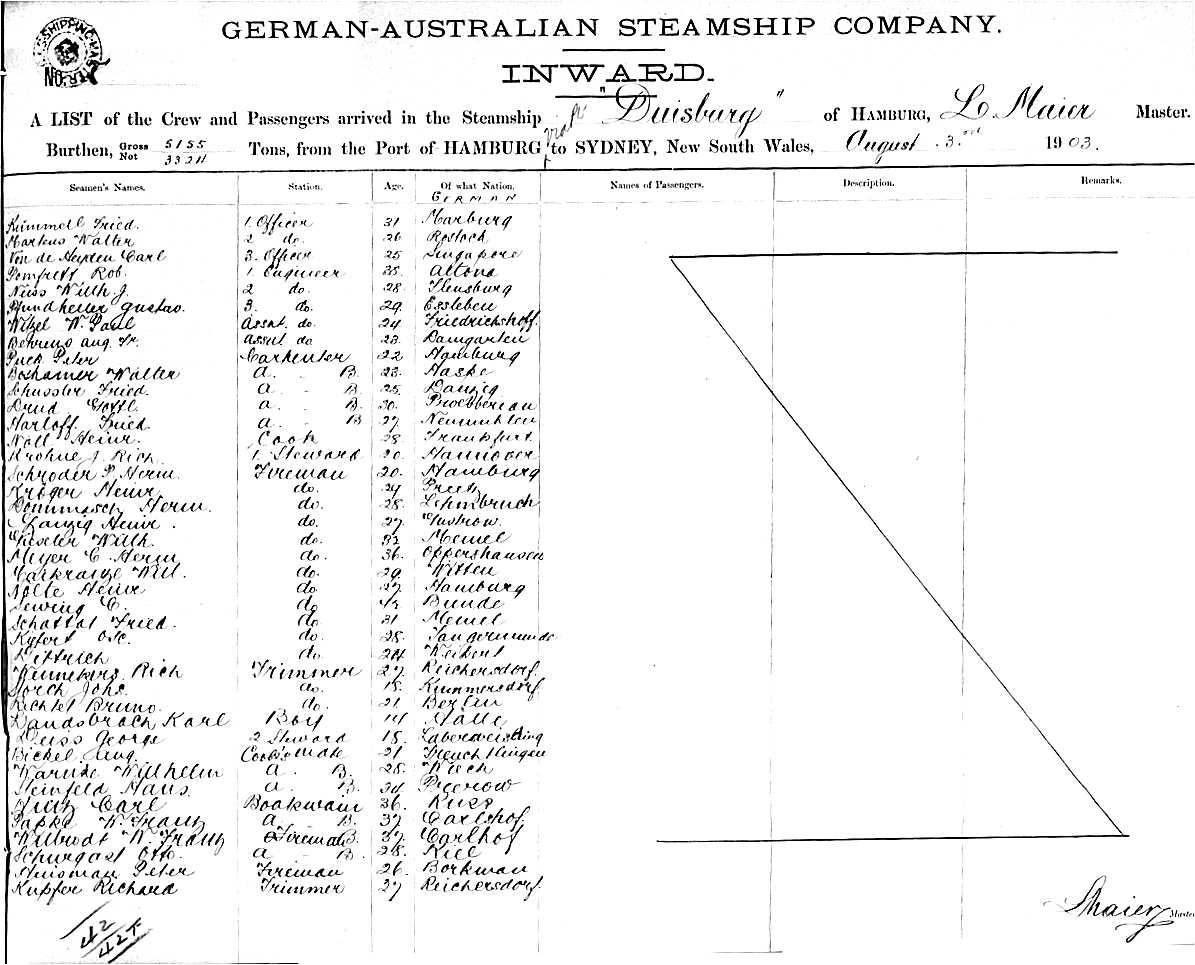 SHIPPING MASTER
NO.
GERMAN-AUSTRALIAN STEAMSHIP COMPANY.
INWARD.
A LIST of the Crew and Passengers arrived in the Steamship "Duisburg" of HAMBURG, L. Maier Master.
Burthen, Gross 5155 Not 3324 Tons, from the Port of HAMBURG to SYDNEY, New South Wales, August 3rd 1903.
Seamen's Names. Station. Age. Of what Nation. Names of Passengers. Description. Remarks.
GERMAN
Kümmell Fried. 1 Officer 31 Marburg
Markus Walter 2 do. 26 Rostock
Von de Heyden Carl 3. Officer 25 Singapore
Pomfrett Rob. 1 Engineer 38. Altona
Neiss Wilh. J. 2 do. 28. Flensburg
Pfundheller Gustav. 3. do. 29. Essleben
Witzel W. Paul Assnt. do. 24 Friedrichshoff.
Behrens Aug. Fr. Assnt do 23. Damgarten
Puck Peter Carpenter 22 Hamburg
Boshamer Walter A. B. 23. Haspe
Schussler Fried. A B. 25. Danzig
Drud Gottl. A. B. 30.
Harloff Fried A. B 27 Neumuhlen
Noll Heinr. Cook 28 Frankfurt
Krohne J. Rich. 1. Steward 20. Hannover
Schroder P. Herm. Fireman 20. Hamburg
Kröger Heinr. do. 24 Preetz
Dommasch Herm. do. 28. Lehmbruch
Danzig Heinr. do. 27. Gustrow.
Giseler Wilh. do. 32 Memel
Meyer C. Herm do. 36. Oppershausen
Will. do. 29. Witten
Nolte Heinr do 27. Hamburg
Sewing C. do Bunde
Schattat Fried. do 31 Memel
Kyfert Osc. do. 28. Tangermunde
Dittrich do 24
Wenneberg Rich Trimmer 27. Reichersdorf.
Storch Johs. do. 18. Kummersdorf
Richter Bruno. do. 21 Berlin
Landsbrach Karl Boy 14 Halle
Deiss George 2 Steward 18. Laberweinting
Bickel Aug. Cook's mate 21
Warnde Wilhelm A. B. 28. Wieck
Steinfeld Hans. A. B. 34 Prerow
Carl Boatswain 36. Russ
Papke W. Frantz A B. 37 Carlshof.
Wilbrodt W. Frantz Fireman B. 37. Carlhof
Schurgast Otto. A B. 28. Kiel
Huisman Peter Fireman 26. Borkman
Kupfer Richard Trimmer 27 Reichersdorf.
42
42+
L Maier Master